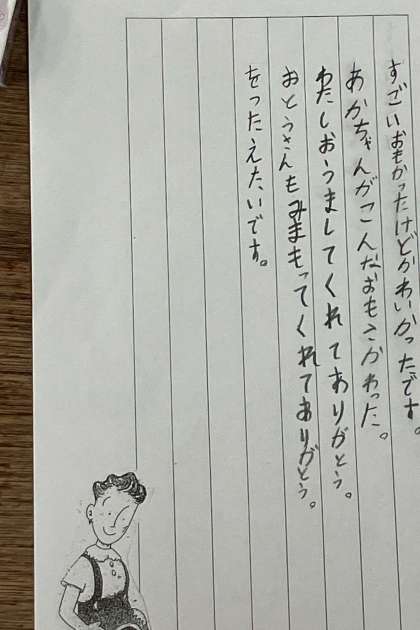 すごいおもかったけどかわいかったです。
あかちゃんがこんなおもさかわった。
わたしおうましてくれてありがとう。
おとうさんもみまもってくれてありがとう。
をつたえたいです。